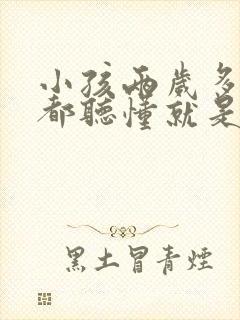 小孩兩歲多
都聽懂就是
黑土冒青煙